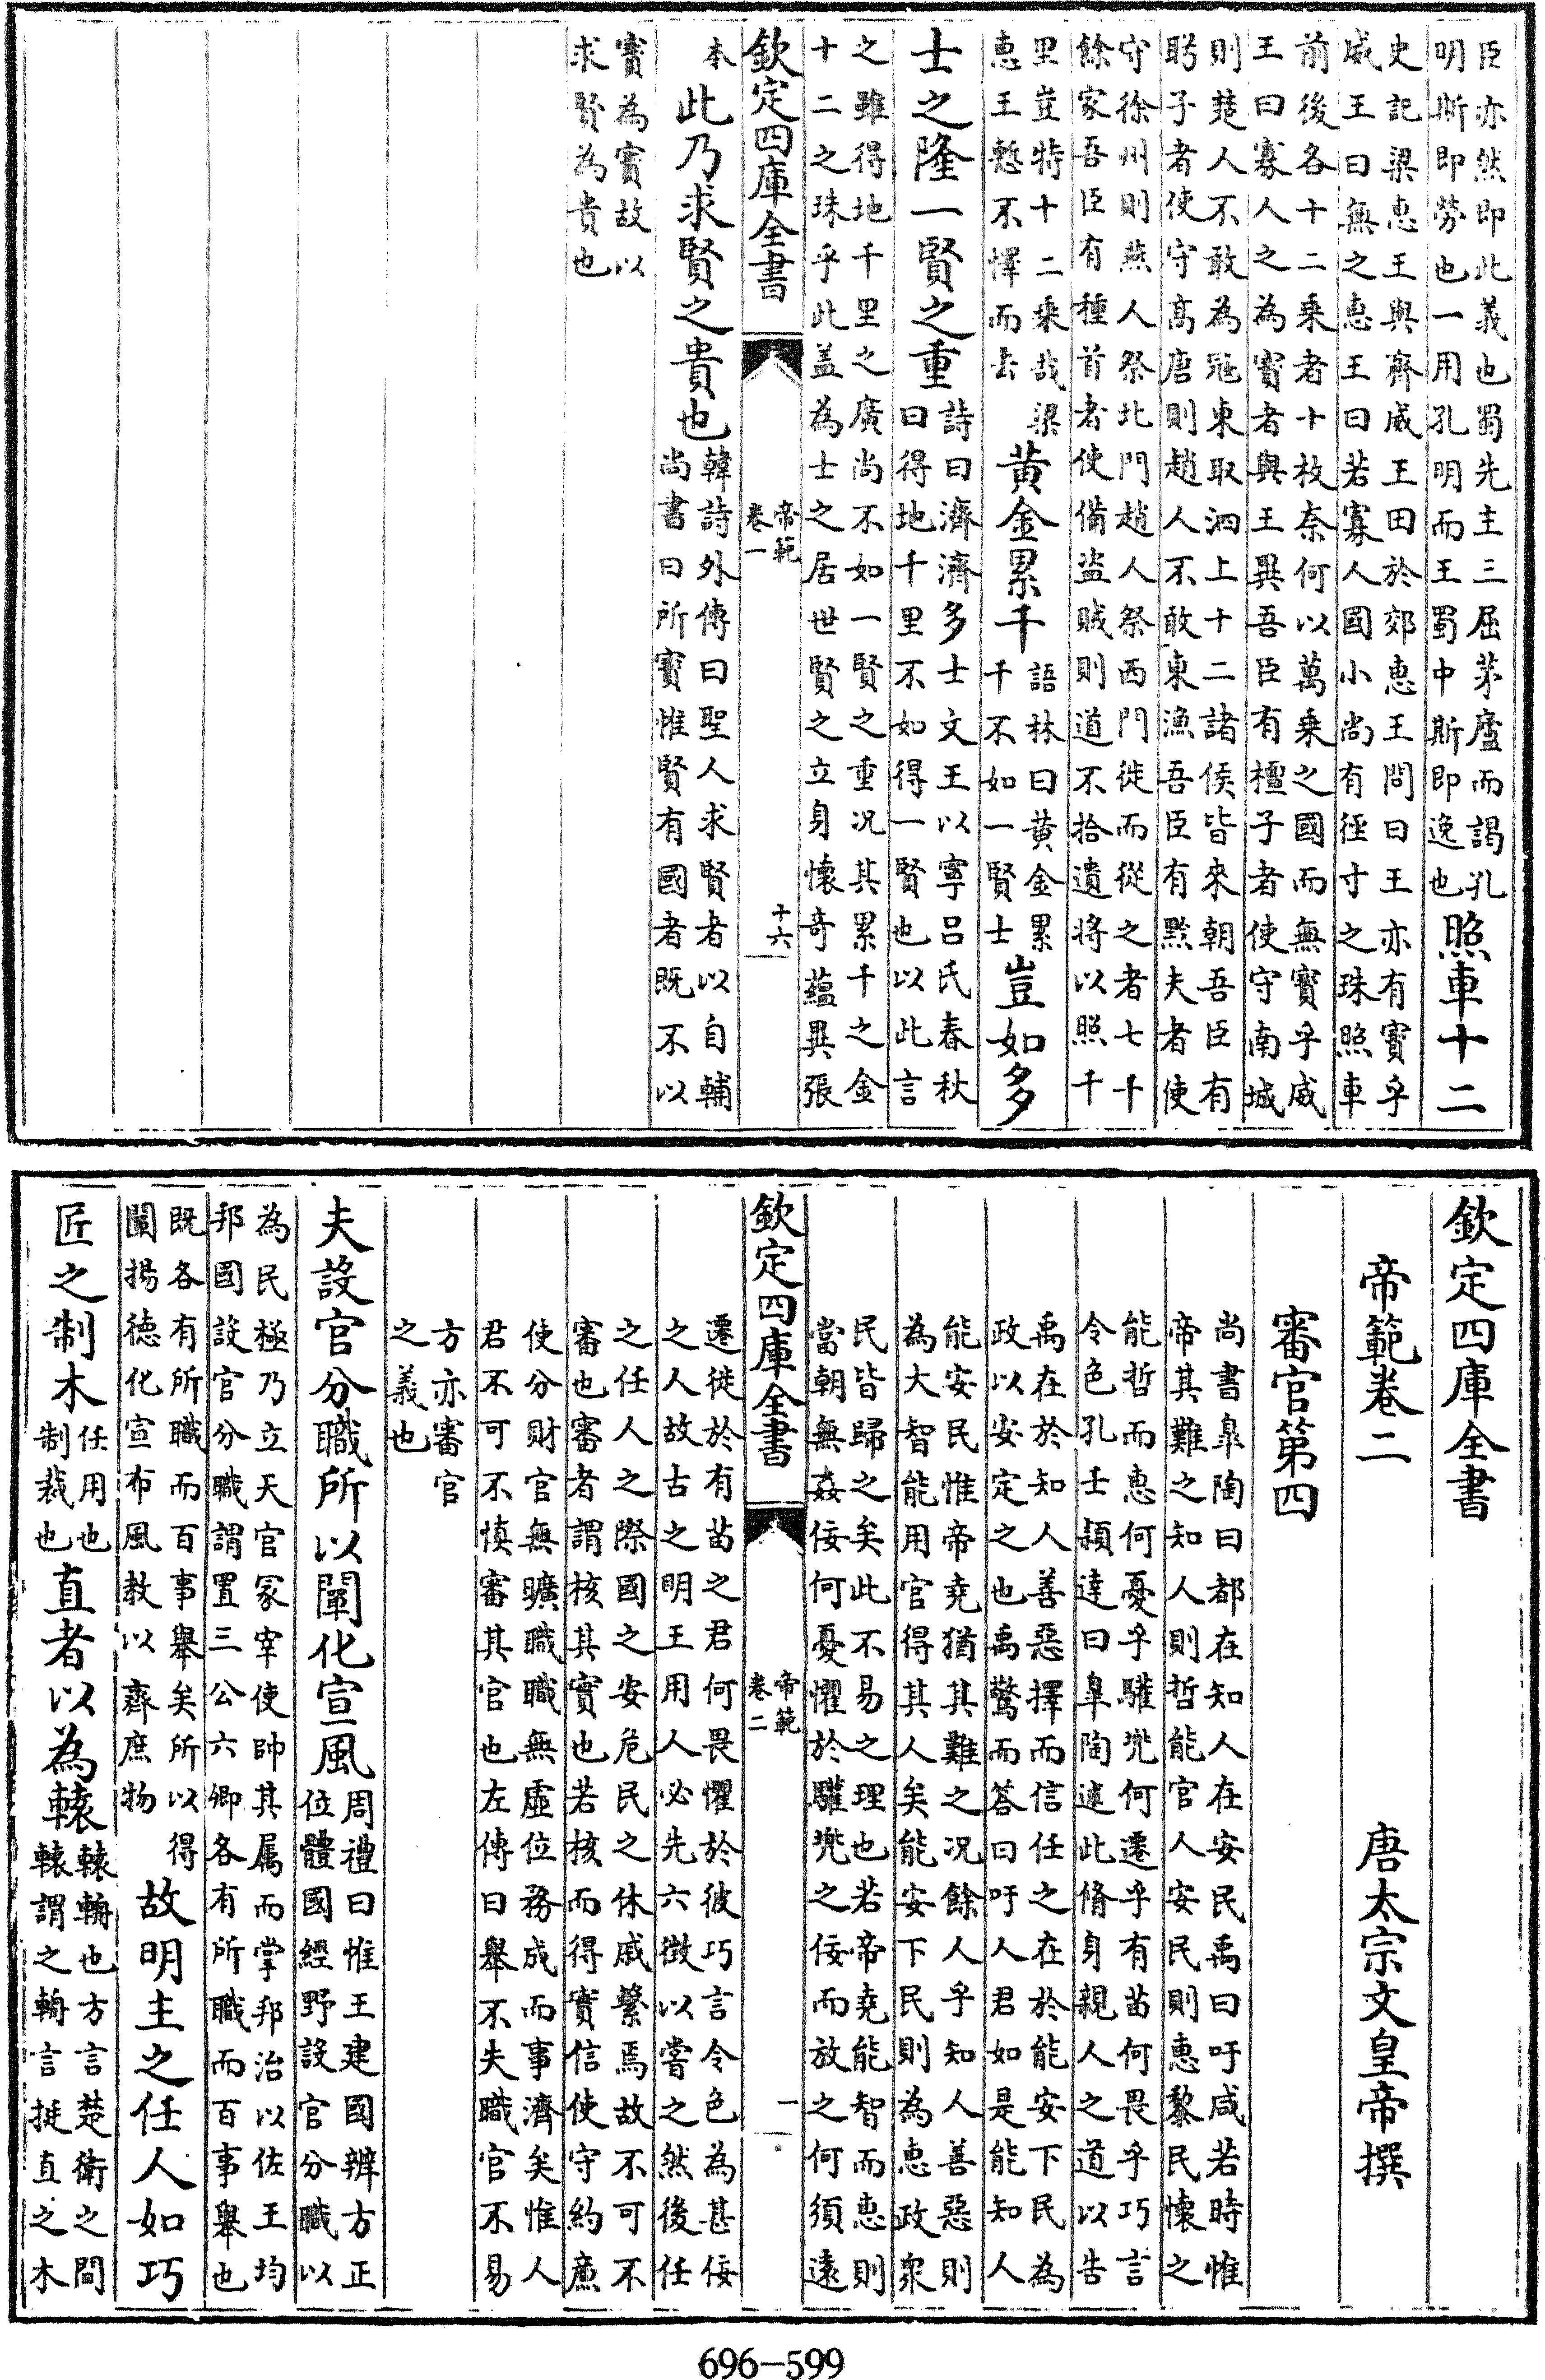 臣亦然即此義也蜀先主三屈茅廬而謁孔
明斯即勞也一用孔明而王蜀中斯即逸也
照車十二
史記梁惠王與齊威王田於郊惠王問曰王亦有寳乎
威王曰無之惠王曰若寡人國小尚有徑寸之珠照車
前後各十二乗者十枚奈何以萬乗之國而無寳乎威
王曰寡人之為寳者與王異吾臣有檀子者使守南城
則楚人不敢為冦東取泗上十二諸侯皆來朝吾臣有
盻子者使守髙唐則趙人不敢東漁吾臣有黙夫者使
守徐州則燕人祭北門趙人祭西門徙而從之者七千
餘家吾臣有種首者使備盗賊則道不拾遺将以照千
里豈特十二乗哉梁
惠王慙不懌而去
黄金累千
語林曰黄金累
千不如一賢士
豈如多
士之隆一賢之重
詩曰濟濟多士文王以寧吕氏春秋
曰得地千里不如得一賢也以此言
之雖得地千里之廣尚不如一賢之重况其累千之金
十二之珠乎此盖為士之居世賢之立身懐竒藴異張
欽定四庫全書
帝範
卷一
十六
本
此乃求賢之貴也
韓詩外傳曰聖人求賢者以自輔
尚書曰所寳惟賢有國者既不以
寳為寳故以
求賢為貴也
欽定四庫全書
帝範卷二
唐太宗文皇帝撰
審官第四
尚書臯陶曰都在知人在安民禹曰吁咸若時惟
帝其難之知人則哲能官人安民則惠黎民懐之
能哲而惠何憂乎驩兜何遷乎有苗何畏乎巧言
令色孔壬頴達曰臯陶述此脩身親人之道以告
禹在於知人善惡擇而信任之在於能安下民為
政以安定之也禹驚而答曰吁人君如是能知人
能安民惟帝堯猶其難之况餘人乎知人善惡則
為大智能用官得其人矣能安下民則為惠政衆
民皆歸之矣此不易之理也若帝堯能智而惠則
當朝無姦佞何憂懼於驩兜之佞而放之何須遠
欽定四庫全書
帝範
卷二
一
遷徙於有苗之君何畏懼於彼巧言令色為甚佞
之人故古之明王用人必先六徴以嘗之然後任
之任人之際國之安危民之休戚繫焉故不可不
審也審者謂核其實也若核而得實信使守約廉
使分財官無曠職職無虚位務成而事濟矣惟人
君不可不慎審其官也左傳曰舉不失職官不易
方亦審官
之義也
夫設官分職所以闡化宣風
周禮曰惟王建國辨方正
位體國經野設官分職以
為民極乃立天官冢宰使帥其属而掌邦治以佐王均
邦國設官分職謂置三公六卿各有所職而百事舉也
既各有所職而百事舉矣所以得
闡揚徳化宣布風教以齊庶物
故明主之任人如巧
匠之制木
任用也
制裁也
直者以為轅
轅輈也方言楚衛之間
轅謂之輈言挺直之木
696-599